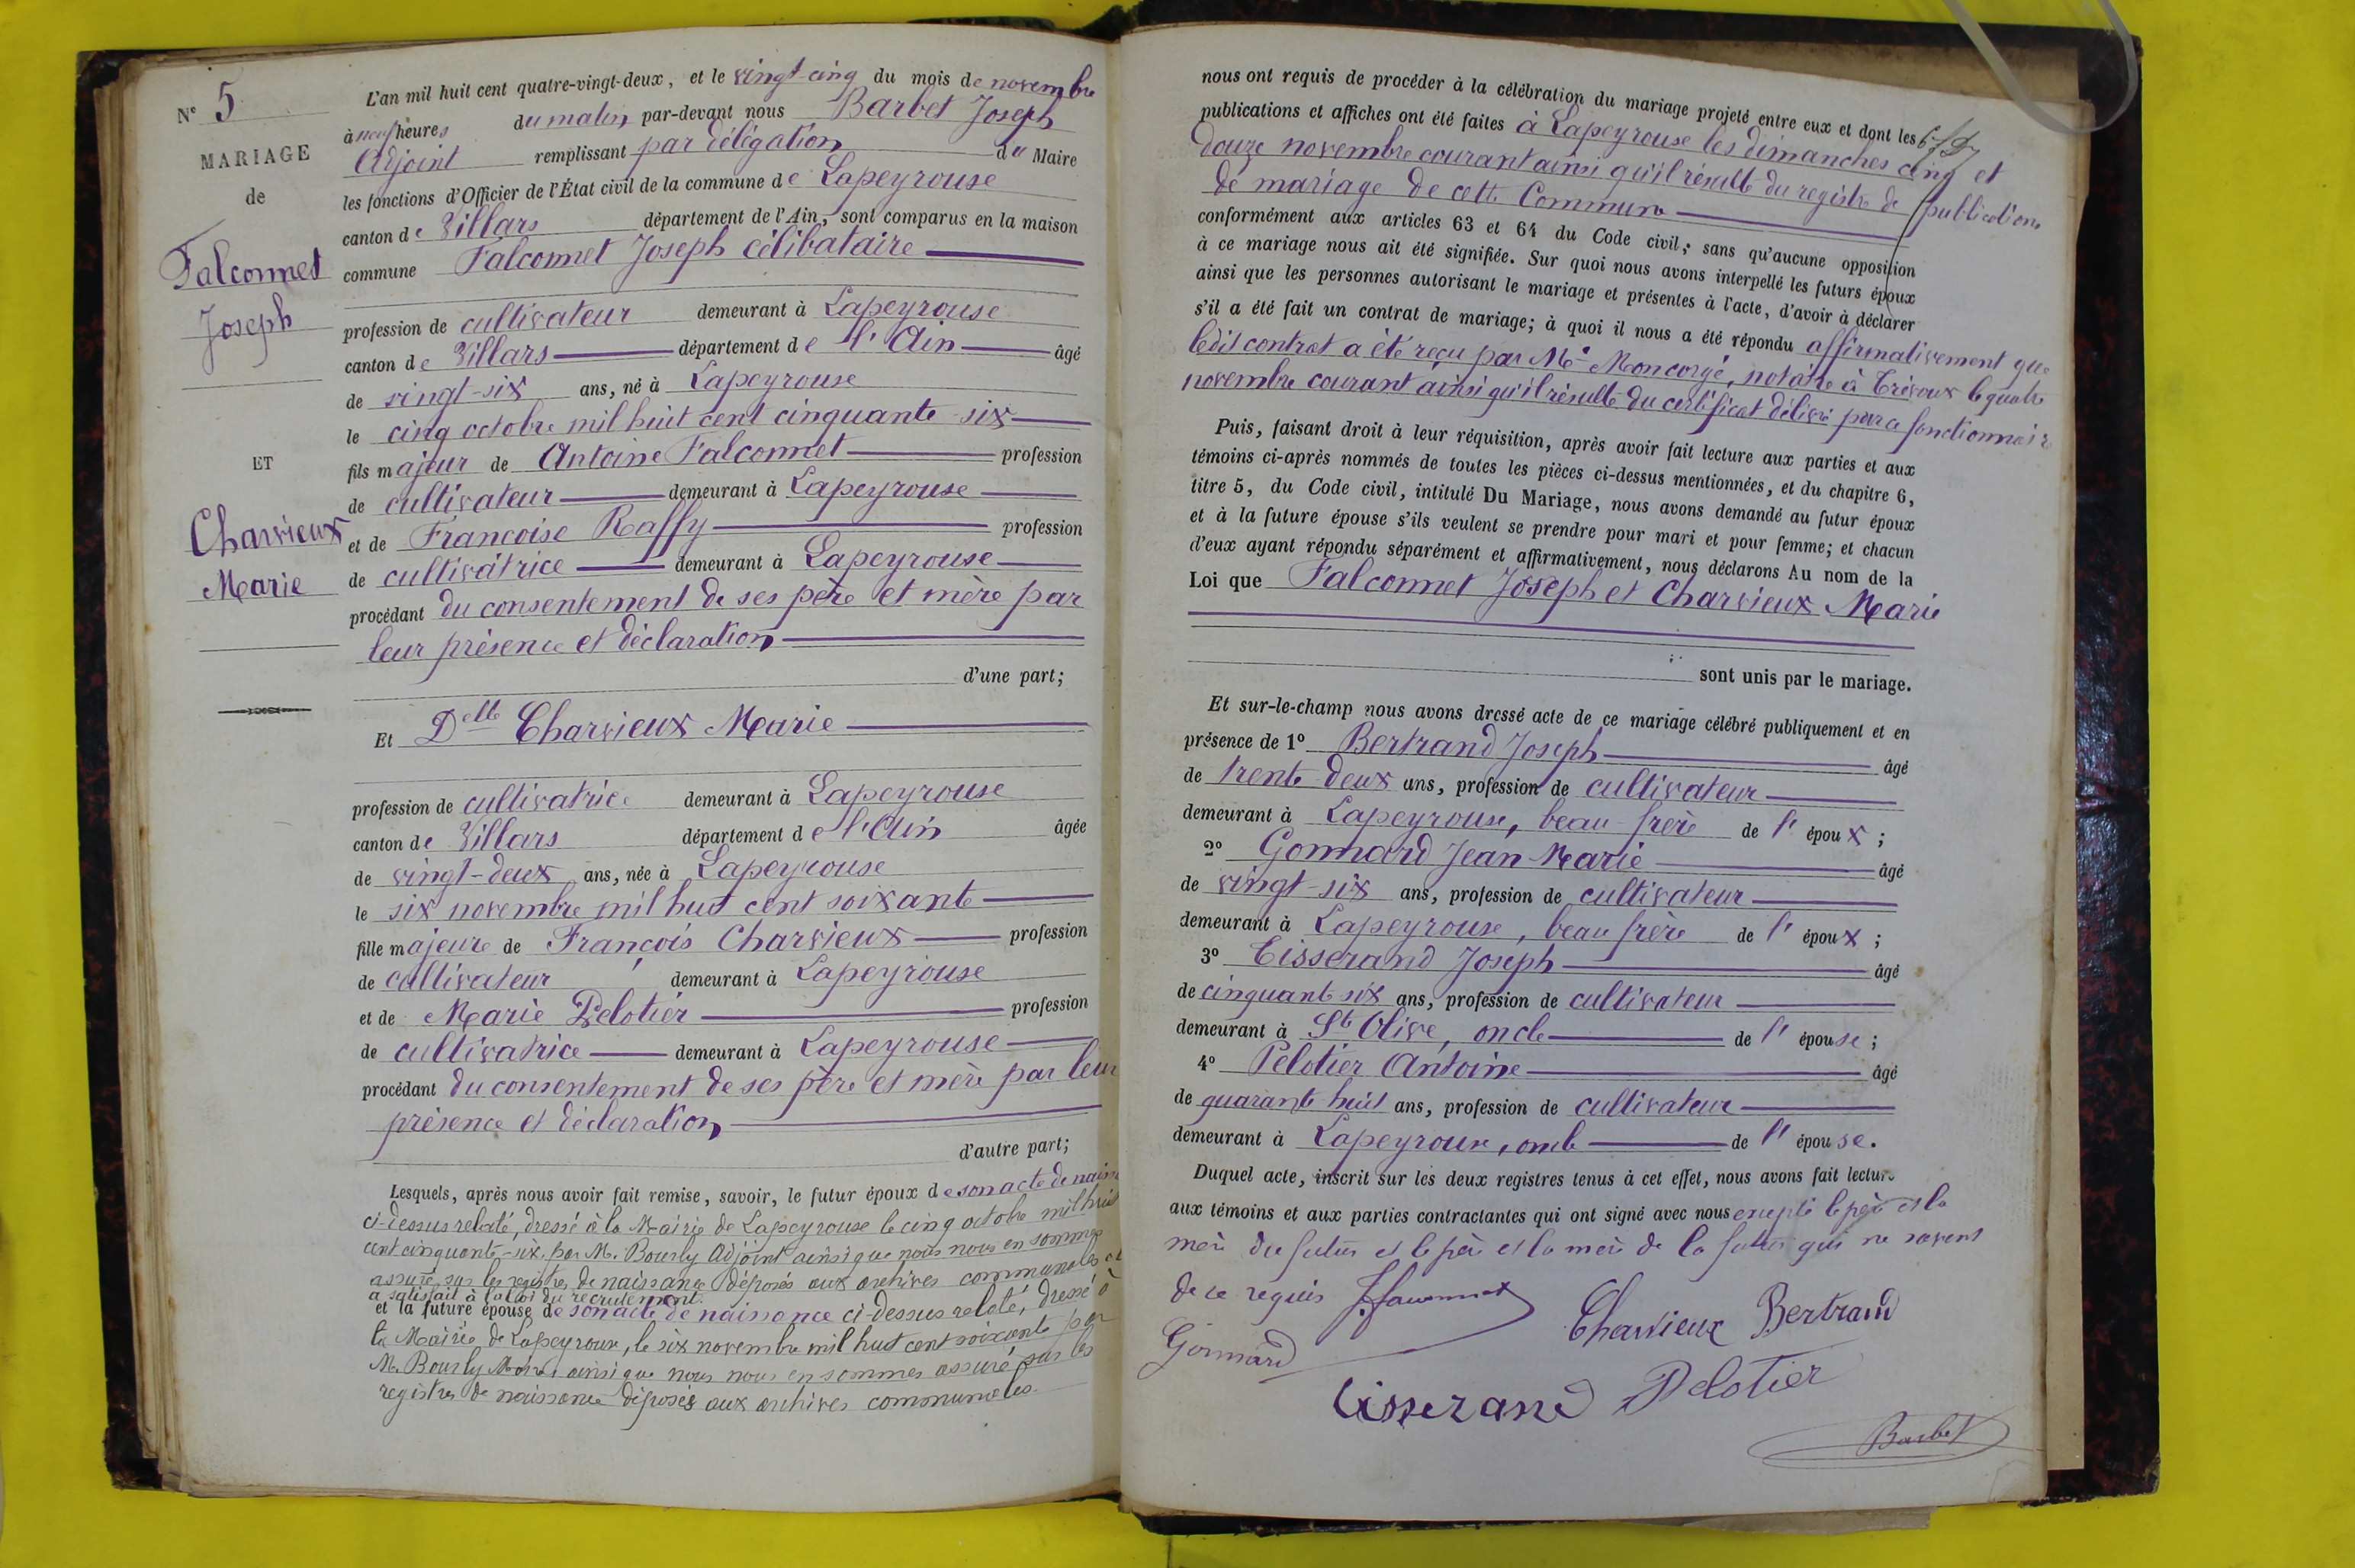 N° 5
MARIAGE
de
Falconnet
Joseph
ET
Charvieux
Marie
L'an mil huit cent quatre-vingt-deux, et le vingt-cinq du mois de novembre
à neuf heures du matin par-devant nous Barbet Joseph
Adjoint remplissant par délégation du Maire
les fonctions d'Officier de l'État civil de la commune de Lapeyrouse
canton de Villars département de l'Ain, sont comparus en la maison
commune Falconnet Joseph célibataire
profession de cultivateur demeurant à Lapeyrouse
canton de Villars département de l'Ain âgé
de vingt-six ans, né à Lapeyrouse
le cinq octobre mil huit cent cinquante-six
fils majeur de Antoine Falconnet profession
de cultivateur demeurant à Lapeyrouse
et de Francoise Raffy profession
de cultivatrice demeurant à Lapeyrouse
procédant du consentement de ses père et mère par
leur présence et déclaration
d'une part;
Et Delle Charvieux Marie
profession de cultivatrice demeurant à Lapeyrouse
canton de Villars département de l'Ain âgée
de vingt-deux ans, née à Lapeyrouse
le six novembre mil huit cent soixante
fille majeure de François Charvieux profession
de cultivateur demeurant à Lapeyrouse
et de Marie Pelotier profession
de cultivatrice demeurant à Lapeyrouse
procédant du consentement de ses père et mère par leur
présence et déclaration
d'autre part;
Lesquels, après nous avoir fait remise, savoir, le futur époux de son acte de
ci-dessus relaté, dressé à la Mairie de Lapeyrouse le cinq octobre mil huit
cent cinquante-six par M. Bourly Adjoint ainsi que nous nous en sommes
assuré sur les registres de naissance déposés aux archives communales et
a satisfait à la loi du recrutement.
et la future épouse de son acte de naissance ci-dessus relaté, dressé à
la Mairie de Lapeyrouse, le six novembre mil huit cent soixante par
M. Bourly Maire, ainsi que nous nous en sommes assuré sur les
registres de naissance déposés aux archives communales.
nous ont requis de procéder à la célébration du mariage projeté entre eux et dont les
publications et affiches ont été faites à Lapeyrouse les dimanches cinq et
douze novembre courant ainsi qu'il résulte du registre de publications
de mariage de cette Commune
conformément aux articles 63 et 64 du Code civil; sans qu'aucune opposition
à ce mariage nous ait été signifiée. Sur quoi nous avons interpellé les futurs époux
ainsi que les personnes autorisant le mariage et présentes à l'acte, d'avoir à déclarer
s'il a été fait un contrat de mariage; à quoi il nous a été répondu affirmativement que
ledit contrat a été reçu par Me Moncorgé, notaire à Trévoux le quatre
novembre courant ainsi qu'il résulte du certificat délivré par ce fonctionnaire
Puis, faisant droit à leur réquisition, après avoir fait lecture aux parties et aux
témoins ci-après nommés de toutes les pièces ci-dessus mentionnées, et du chapitre 6,
titre 5, du Code civil, intitulé Du Mariage, nous avons demandé au futur époux
et à la future épouse s'ils veulent se prendre pour mari et pour femme; et chacun
d'eux ayant répondu séparément et affirmativement, nous déclarons Au nom de la
Loi que Falconnet Joseph et Charvieux Marie
sont unis par le mariage.
Et sur-le-champ nous avons dressé acte de ce mariage célébré publiquement et en
présence de 1° Bertrand Joseph âgé
de trente-deux ans, profession de cultivateur
demeurant à Lapeyrouse, beau-frère de l'époux;
2° Gonnard Jean-Marie âgé
de vingt-six ans, profession de cultivateur
demeurant à Lapeyrouse, beau frère de l'époux;
3° Tisserand Joseph âgé
de cinquante six ans, profession de cultivateur
demeurant à Ste Olive, oncle de l'épouse;
4° Pelotier Antoine âgé
de quarante huit ans, profession de cultivateur
demeurant à Lapeyrouse, oncle de l'épouse.
Duquel acte, inscrit sur les deux registres tenus à cet effet, nous avons fait lecture
aux témoins et aux parties contractantes qui ont signé avec nous excepté le père et la
mère du futur et le père et la mère de la future qui ne savent
de ce requis
Charvieux Bertrand
Gonnard
Tisserand Pelotier
Barbet